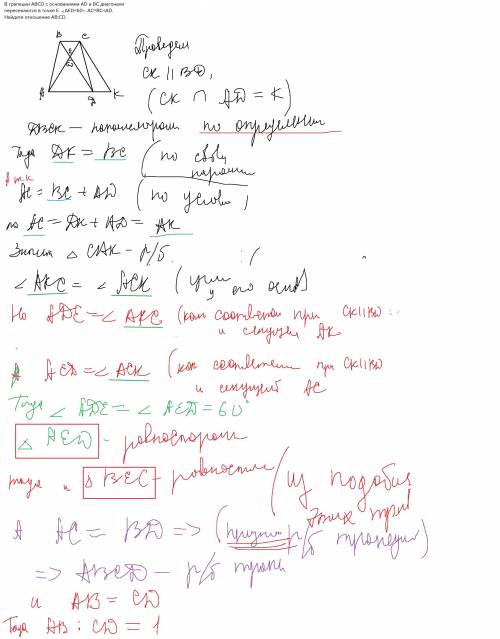 В трапеции ABCD с основаниями AD и BC диагонали
пересекаются в точке E. ∠AED=60°. AC=BC+AD.
Найдите отношение AB:CD.
B C
E
A D K
Проведем
CK || BD,
(CK ∩ AD = K)
DBCK – параллелограмм по определению
Тогда DK = BC (по св-ву параллел
А т.к.
AC = BC + AD (по условию)
то AC = DK + AD = AK
Значит △ CAK – р/б
∠ AKC = ∠ ACK (углы у его основ)
Но ADE = ∠ AKC (как соответств при CK||BD
и секущей AK
А AED = ∠ ACK (как соответствен при CK||BD
и секущей AC
Тогда ∠ ADE = ∠ AED = 60°
△ AED – равносторон
тогда и △ BEC – равностор (из подобия
этих треуг
А AC = BD => (признак р/б трапеции)
=> ABCD – р/б трапе
и AB = CD
Тогда AB : CD = 1